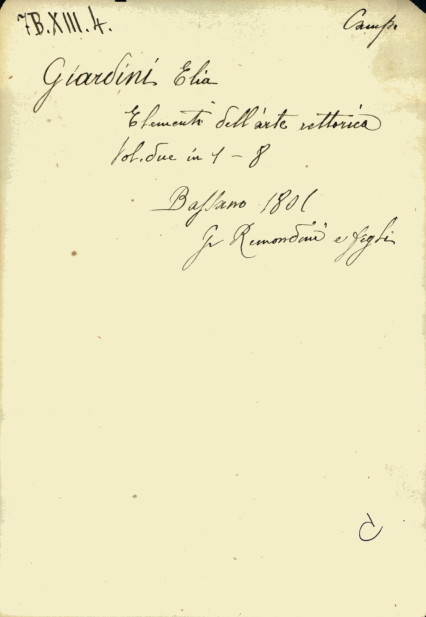 7B.XIII.4.
Camp.
Giardini Elia
Elementi dell'arte rettorica
Vol. due in 1 - 8
Bassano 1801
G Remondini e figli
C